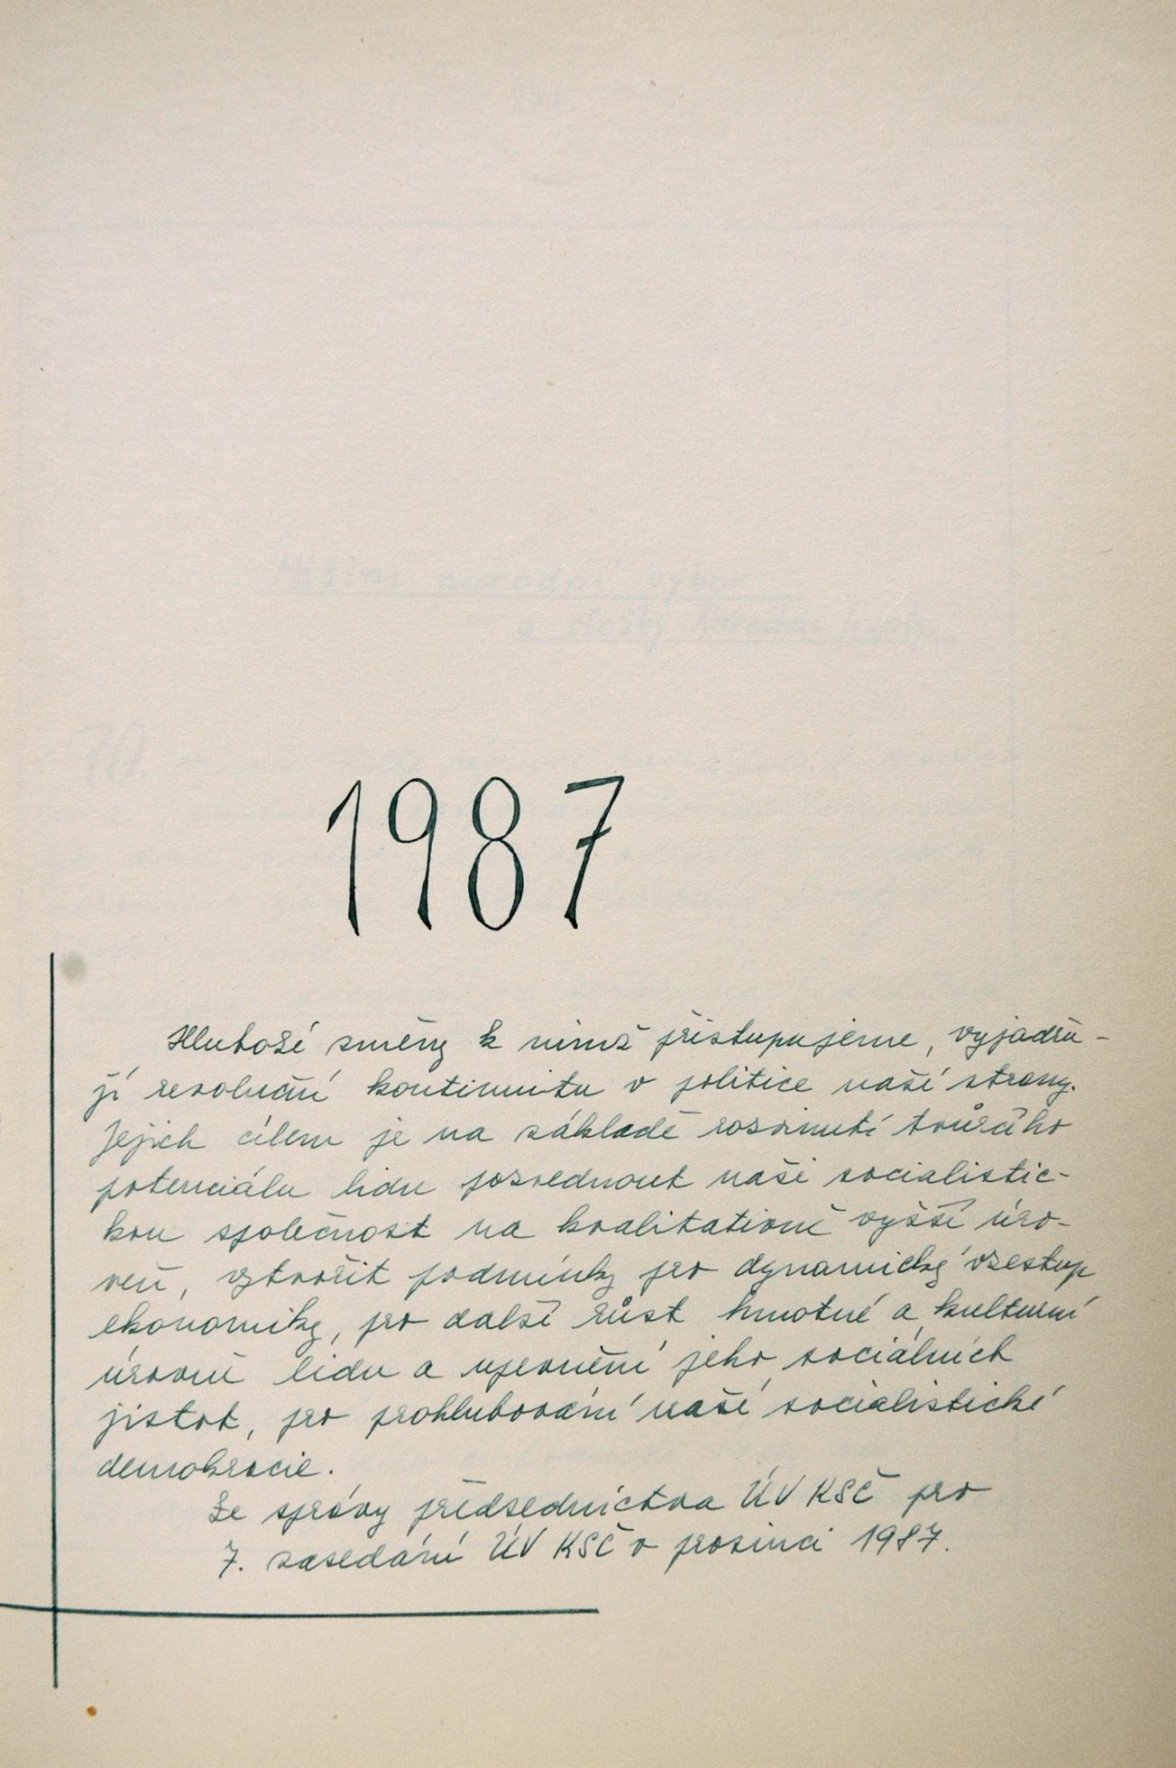 1987
Hluboké změny k nimž přistupujeme, vyjadřu-
jí revoluční kontinuitu v politice naší strany.
Jejich cílem je na základě rozvinutí tvůrčího
potenciálu lidu pozvednout naši socialistic-
kou společnost na kvalitativně vyšší úro-
veň, vytvořit podmínky pro dynamický vzestup
ekonomiky, pro další růst hmotné a kulturní
úrovně lidu a upevnění jeho sociálních
jistot, pro prohlubování naší socialistické
demokracie.
Ze zprávy předsednictva ÚV KSČ pro
7. zasedání ÚV KSČ v prosinci 1987.